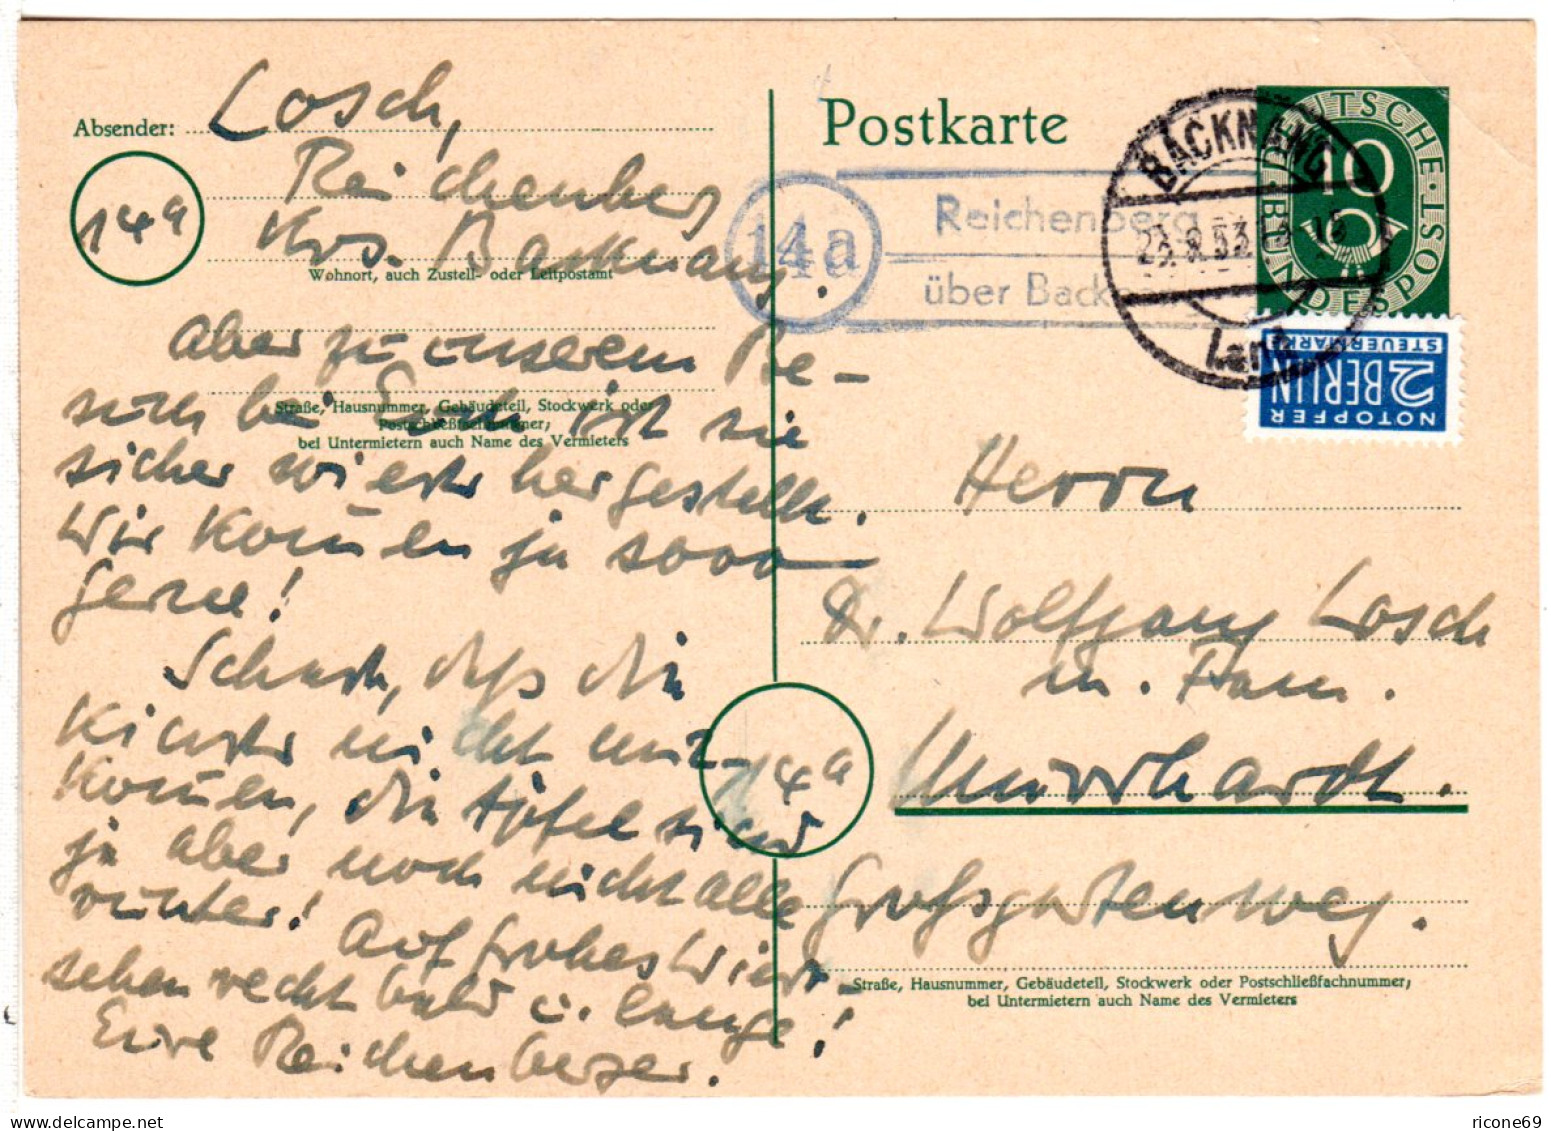 Absender: Losch,
14a Reichenberg
Krs. Backnang.
Wohnort, auch Zustell- oder Leitpostamt
Aber zu unserem Be-
such bei Euch ist sie
Straße, Hausnummer, Gebäudeteil, Stockwerk oder
Postschließfachnummer;
bei Untermietern auch Name des Vermieters
sicher wieder hergestellt.
Wir kom̅en ja sooo
gerne!
Schade, daß die
Kinder nicht mit-
kom̅en, die Äpfel sind
ja aber noch nicht alle
runter! Auf frohes Wieder-
sehen recht bald u. lange!
Eure Reichenberger.
Postkarte
14a
Reichenberg
über Backnang
BACKNANG
Land
DEUTSCHE BUNDESPOST
10
NOTOPFER
2 BERLIN
STEUERMARKE
Herrn
Dr. Wolfgang Losch
u. Fam.
14a Murrhardt.
Großgartenweg.
Straße, Hausnummer, Gebäudeteil, Stockwerk oder Postschließfachnummer;
bei Untermietern auch Name des Vermieters
ricone69